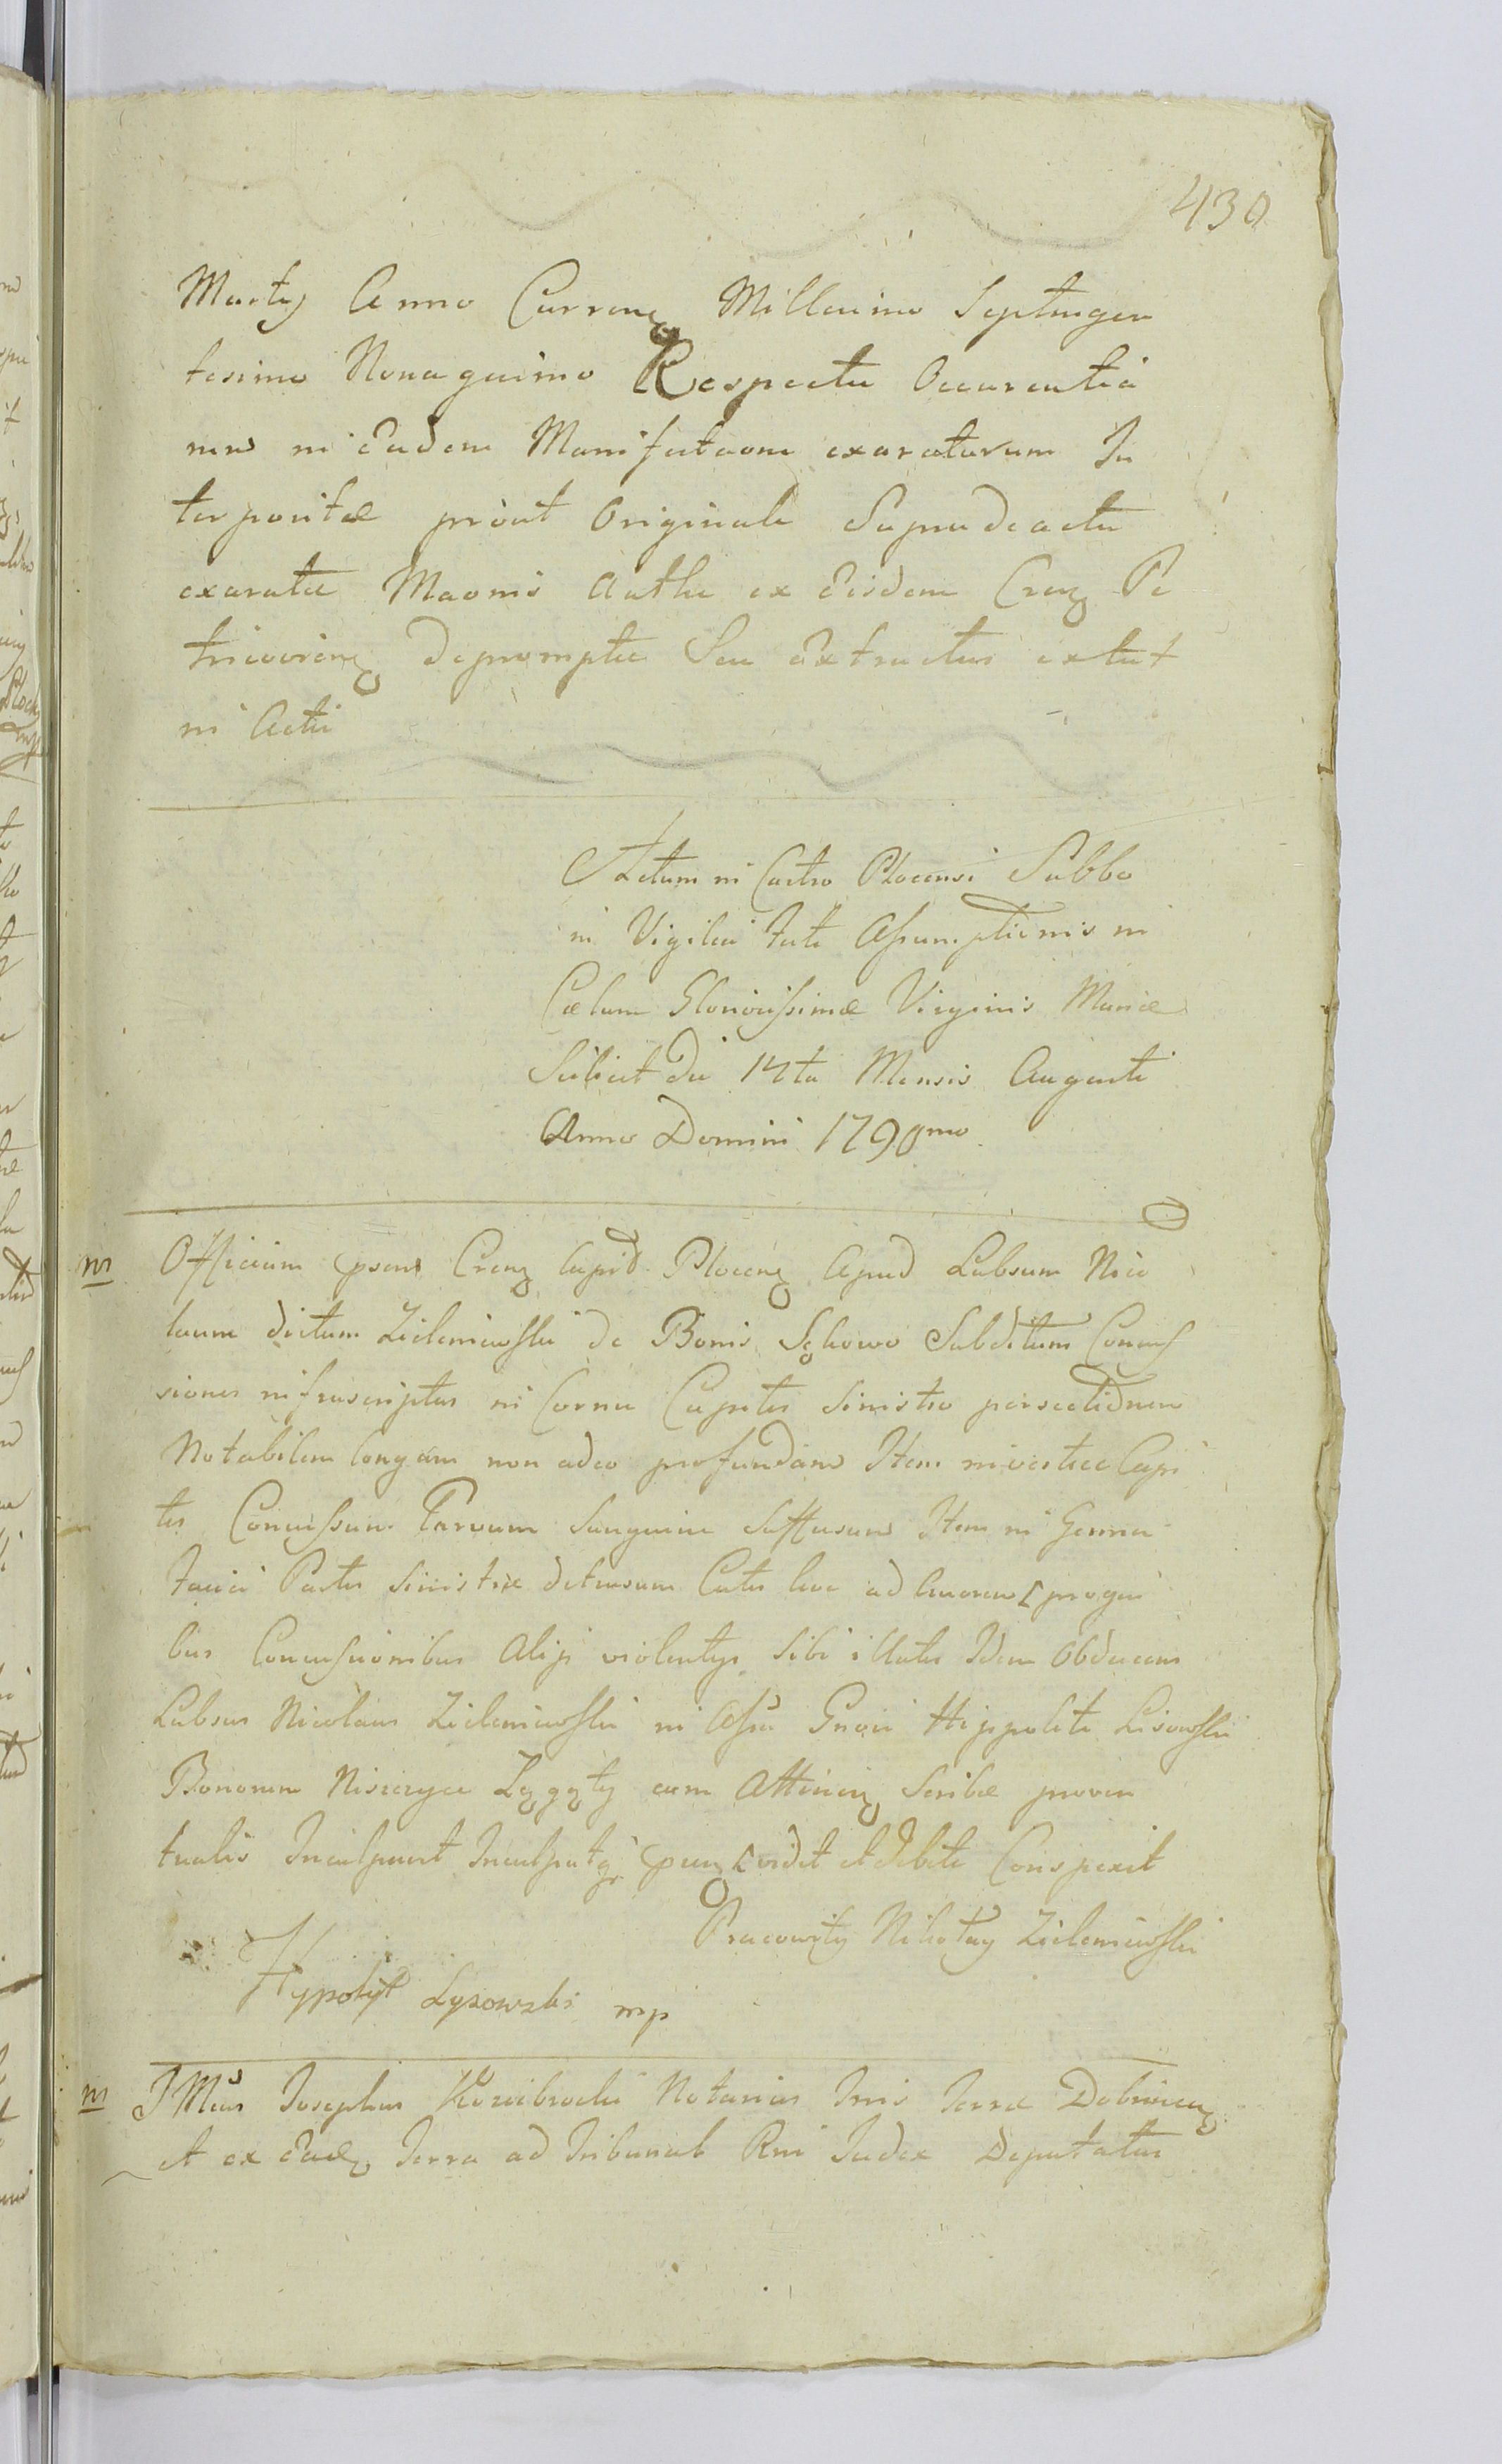 430
Martij Anno Curren Millesimo Septingen
tesimo Nonagesimo Respectu Occurentia
rum in Eadem Manifestaone exaratarum In
terpositæ prout Originale Suprudeactu
exaratæ Maonis Authe ex Eisdem Cren Pe
tricovien depromptæ Seu Extractus extat
in Actis
Actum in Castro Plocensi Sabbo
in Vigilia Festi Assumptionis in
Cælum Gloriosissimæ Virginis Mariæ
Scilicet Die 14ta Mensis Augusti
Anno Domini 1790mo
m Officium psens Cren Capit Plocen Apud Labsum Nico
laum dictum Zieleniewski de Bonis Sękowo Subditum Concus
siones infrascriptas in Cornu Capitis Sinistro persectionem
Notabilem longam non adeo profundam Item in vertice Capi
tis Concussum Parvum Sanguine Suffusum Item in Genna
Faciei Partis Sinistræ detrusum Cutis hoc ad cruorem pro qui
bus Concussionibus Alijs violentijs Sibi illatis Idem Obducens
Labsus Nicolaus Zieleniewski in Assa Gnosi Hippoliti Lisowski
Bonorum Niszczyce cum Attinen Scribæ proven
tualis Inculpavit vidit et debite Conspexit
Pracowity Mikołay Zieleniewski
Hypolyt Lyzowski mp
m JMcus Josephus Notarius Tris Terræ Dobrinen
et ex Ead Terra ad Tribunal Rni Judex Deputatus